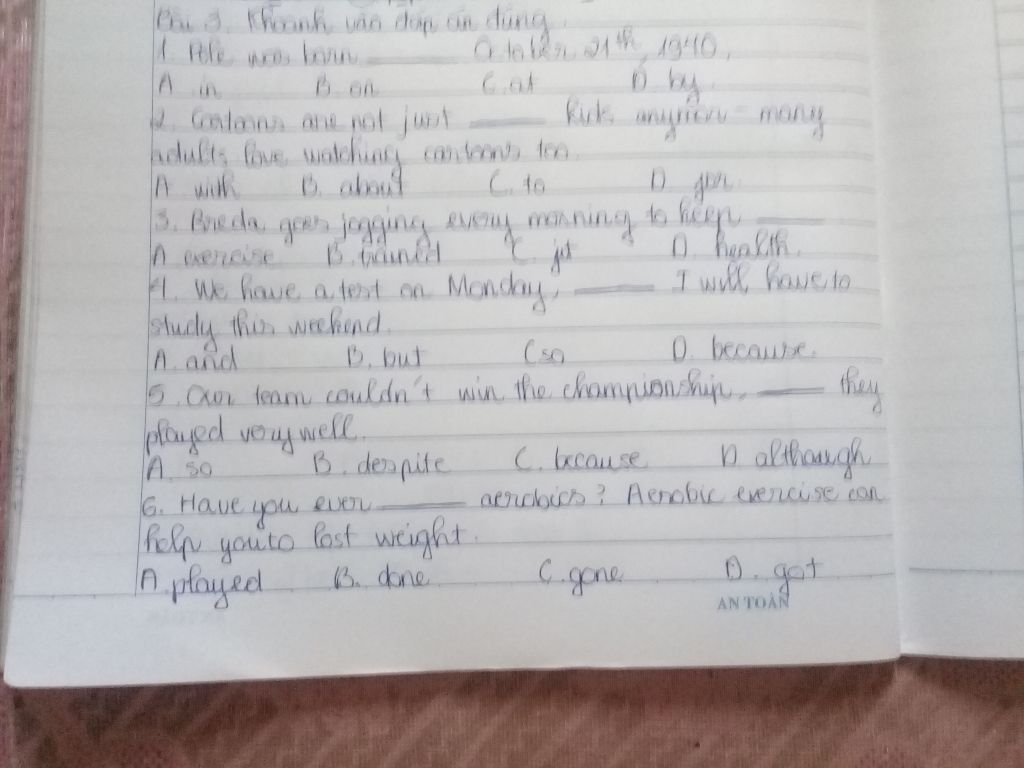 Bài 3. Khoanh vào đáp án đúng.
1. Pele was born ____ October 21th, 1940.
A. in B. on C. at D. by
2. Cartoons are not just ____ kids anymore - many
adults love watching cartoons too.
A. with B. about C. to D. for
3. goes jogging every morning to keep ____
A. exercise B. trained C. fit D. health.
4. We have a test on Monday, ____ I will have to
study this weekend.
A. and B. but C. so D. because.
5. Our team couldn't win the championship, ____ they
played very well.
A. so B. despite C. because D. although
6. Have you ever ____ aerobics? Aerobic exercise can
help you to lost weight.
A. played B. done C. gone D. got
AN TOÀN